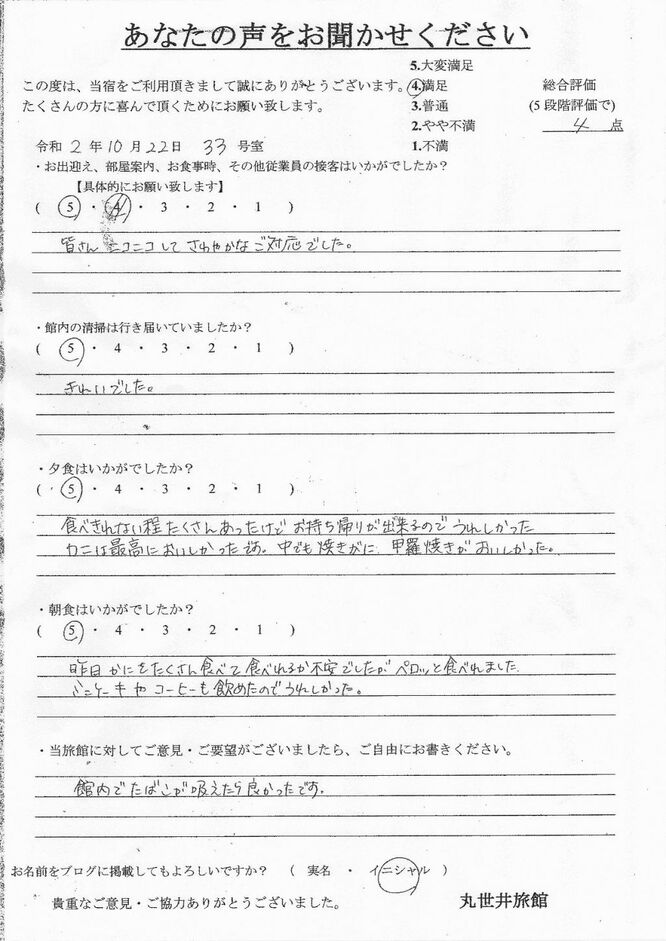 あなたの声をお聞かせください
この度は、当宿をご利用頂きまして誠にありがとうございます。
たくさんの方に喜んで頂くためにお願い致します。
5.大変満足
4.満足
3.普通
2.やや不満
1.不満
総合評価
(5段階評価で)
4 点
令和 2 年 10 月 22 日 33 号室
・お出迎え、部屋案内、お食事時、その他従業員の接客はいかがでしたか?
【具体的にお願い致します】
( 5 ・ 4 ・ 3 ・ 2 ・ 1 )
皆さん ニコニコして さわやかな ご対応でした。
・館内の清掃は行き届いていましたか?
( 5 ・ 4 ・ 3 ・ 2 ・ 1 )
きれいでした。
・夕食はいかがでしたか?
( 5 ・ 4 ・ 3 ・ 2 ・ 1 )
食べきれない程 たくさんあったけど お持ち帰りが出来るので うれしかった
カニは最高においしかったです。中でも焼きがに 甲羅焼きがおいしかった。
・朝食はいかがでしたか?
( 5 ・ 4 ・ 3 ・ 2 ・ 1 )
昨日 かにをたくさん食べて 食べれるか不安でしたが ペロッと食べれました
ケーキや コーヒーも飲めたのでうれしかった。
・当旅館に対してご意見・ご要望がございましたら、ご自由にお書きください。
館内でたばこが吸えたら良かったです。
お名前をブログに掲載してもよろしいですか? ( 実名 ・ イニシャル )
貴重なご意見・ご協力ありがとうございました。
丸世井旅館